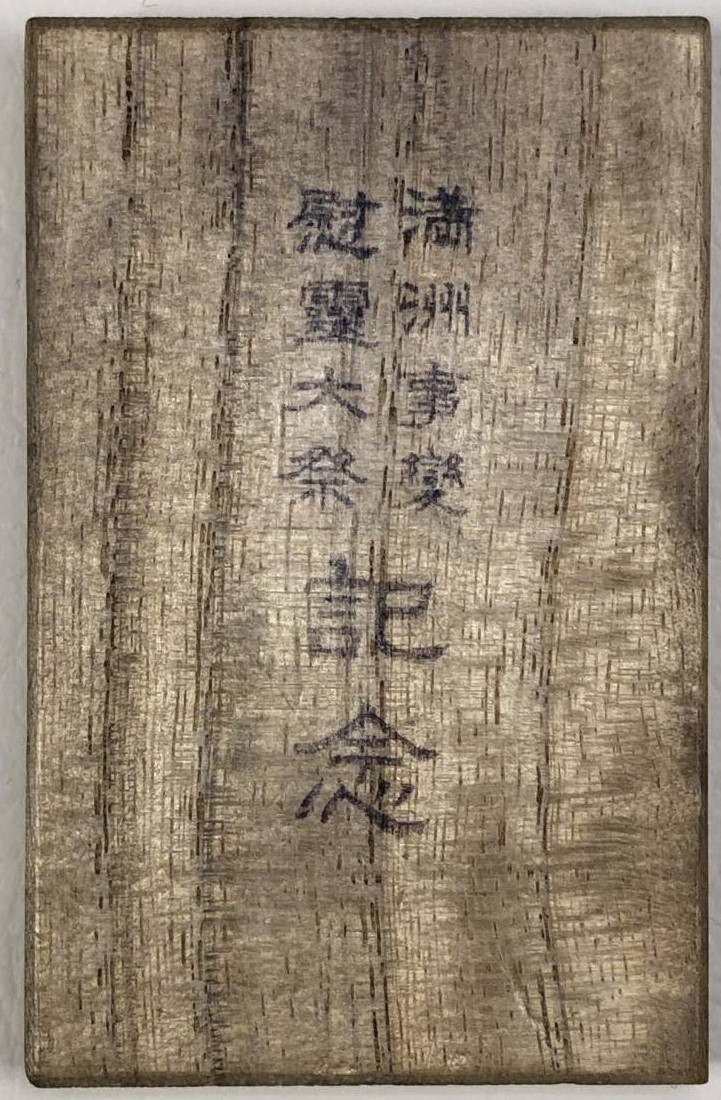 満洲事變
慰靈大祭
記念